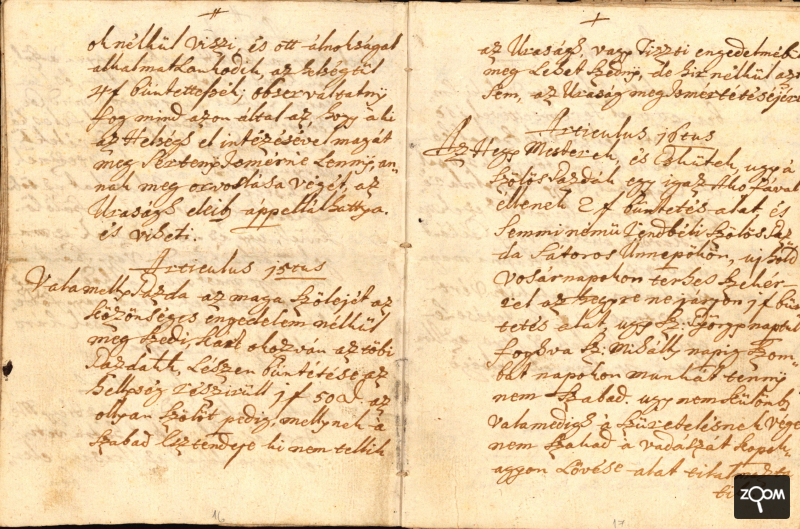 ok nélkül viszi, és ott álnokságal
alkalmatlankodik, az helségtűl
4 f büntettessék; observáltatny
fog mind azon által az, hogy a ki
az Helség el intézésével magát
meg Sertenyi Ismérne Lennyi, an
nak meg orvoslása végét, az
Uraság eleib appellálhattya.
és viheti.
Articulus 15tus
Valamelly Gazda az maga Szőlejét az
közönséges engedelem nélkűl
meg Szedi, kárt okozván az több
Gazdákk, Lészen büntetése az
Hellység részirűl 1 f 50 d. az
ollyan Szőlőt pedig, mellynek a
Szabad Esztendeje ki nem tellik
az Uraság, vagy Tiszti engedelméb
meg Lehet Szedny, de hir nélkül azt
Sem, az Uraság meg Ismértetéséjért
Articulus 16tus
Az Hegy Mesterek, és Esküttek, ugy a
Szőlős Gazdák egy igaz Akó fával
éllyenek 2 f büntetés alat, és
Semminemü rendbéli Szőlős Gaz
da Sátoros Ünnepökön, uj hold
Vosárnapokon terhes Szekér
rel az hegyre ne járjon 1 f bün
tetés alat, ugy Sz: György naptul
fogva Sz: Mihálly napig Szom-
bat napokon munkát tenny
nem Szabad. ugy nem külömb
valamedig a Szüretelésnek vége
nem Szakad a vadászát kopok,
aggon Lövése alat tilalmazta
16
17
ZOOM